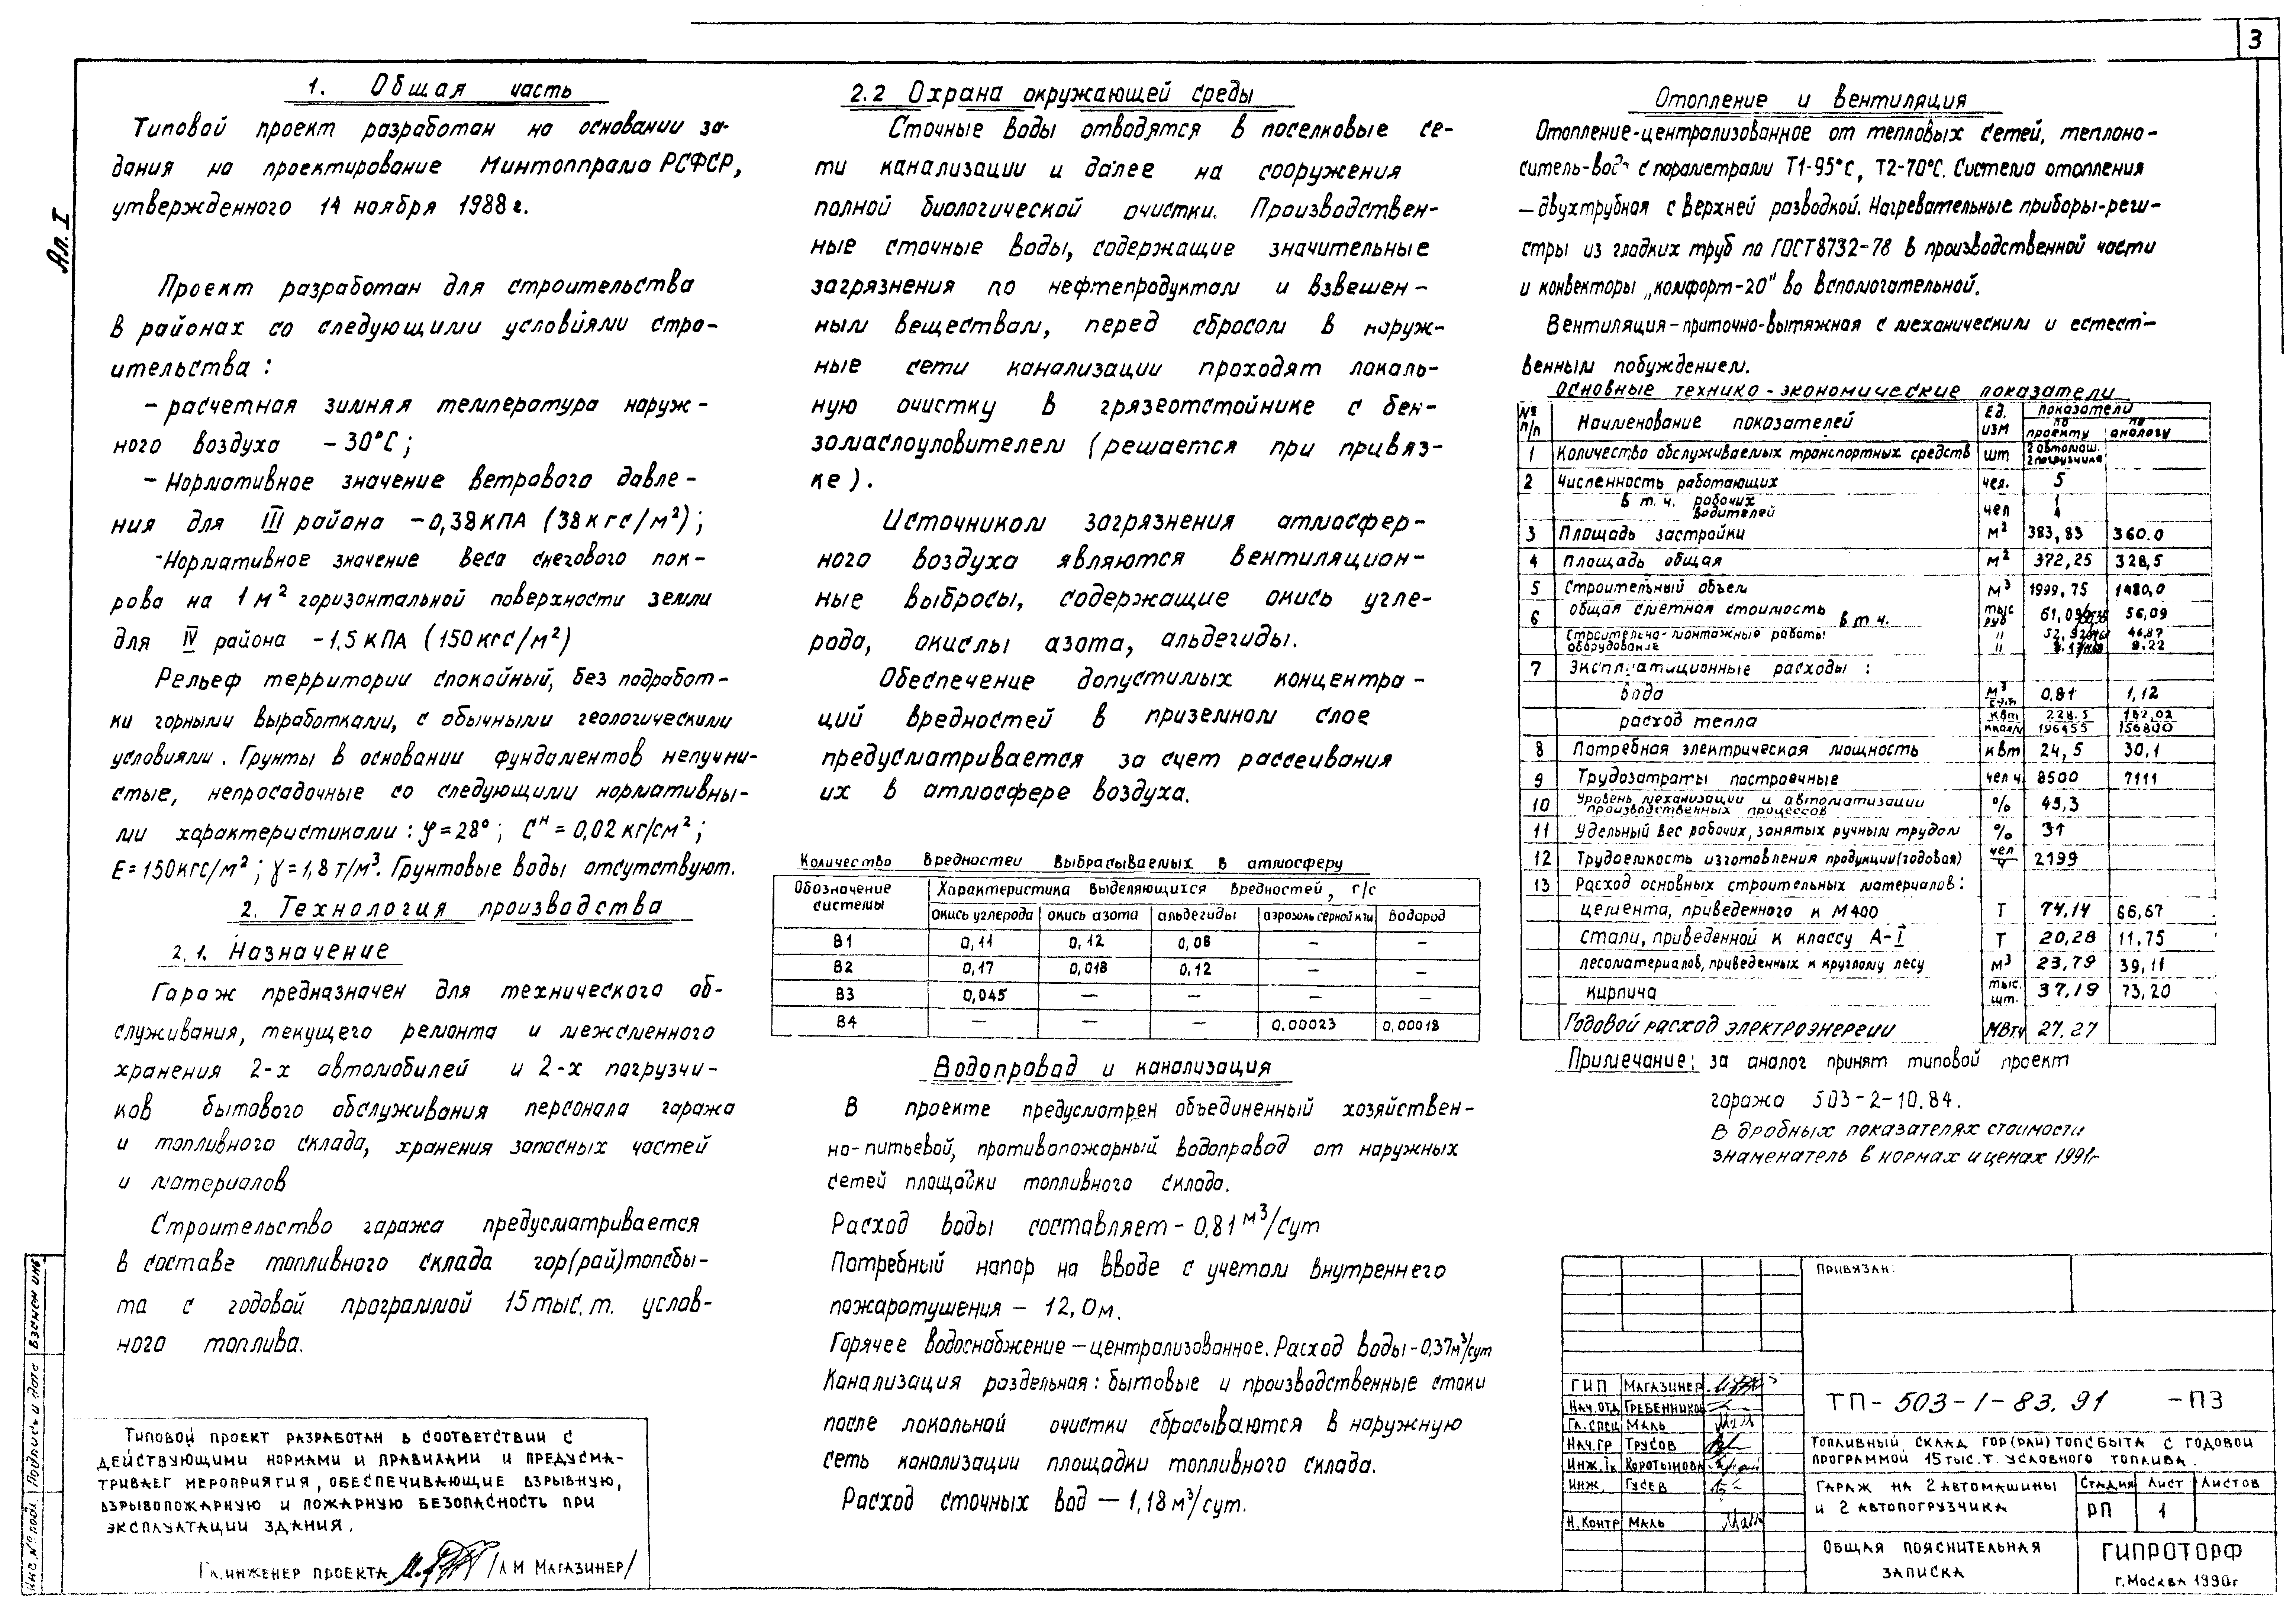 3
Ал. I
1. Общая часть
Типовой проект разработан на основании за-
дания на проектирование Минтоппрома РСФСР,
утвержденного 14 ноября 1988 г.
Проект разработан для строительства
в районах со следующими условиями стро-
ительства :
– расчетная зимняя температура наруж-
ного воздуха – 30°С ;
– Нормативное значение ветрового давле-
ния для III района – 0,38 КПА (38 кгс/м²) ;
– Нормативное значение веса снегового пок-
рова на 1 м² горизонтальной поверхности земли
для IV района – 1,5 КПА (150 кгс/м²)
Рельеф территории спокойный, без подработ-
ки горными выработками, с обычными геологическими
условиями. Грунты в основании фундаментов непучни-
стые, непросадочные со следующими нормативны-
ми характеристиками : φ = 28° ; Cн = 0,02 кг/см² ;
E = 150 кгс/м² ; γ = 1,8 т/м³. Грунтовые воды отсутствуют.
2. Технология производства
2.1. Назначение
Гараж предназначен для технического об-
служивания, текущего ремонта и межсменного
хранения 2-х автомобилей и 2-х погрузчи-
ков бытового обслуживания персонала гаража
и топливного склада, хранения запасных частей
и материалов
Строительство гаража предусматривается
в составе топливного склада гор(рай)топсбы-
та с годовой программой 15 тыс. т. услов-
ного топлива.
Типовой проект разработан в соответствии с
действующими нормами и правилами и предусма-
тривает мероприятия, обеспечивающие взрывную,
взрывопожарную и пожарную безопасность при
эксплуатации здания.
Гл. инженер проекта /А М Магазинер/
Инв. № подл. Подпись и дата Взамен инв
2.2 Охрана окружающей среды
Сточные воды отводятся в поселковые се-
ти канализации и далее на сооружения
полной биологической очистки. Производствен-
ные сточные воды, содержащие значительные
загрязнения по нефтепродуктам и взвешен-
ным веществам, перед сбросом в наруж-
ные сети канализации проходят локаль-
ную очистку в грязеотстойнике с бен-
зомаслоуловителем (решается при привяз-
ке).
Источником загрязнения атмосфер-
ного воздуха являются вентиляцион-
ные выбросы, содержащие окись угле-
рода, окислы азота, альдегиды.
Обеспечение допустимых концентра-
ций вредностей в приземном слое
предусматривается за счет рассеивания
их в атмосфере воздуха.
Количество вредностей выбрасываемых в атмосферу
Обозначение системы Характеристика выделяющихся вредностей, г/с
окись углерода окись азота альдегиды аэрозоль серной к-ты водород
В1 0,11 0,12 0,08 – –
В2 0,17 0,018 0,12 – –
В3 0,045 – – – –
В4 – – – 0,00023 0,00018
Водопровод и канализация
В проекте предусмотрен объединенный хозяйствен-
но-питьевой, противопожарный водопровод от наружных
сетей площадки топливного склада.
Расход воды составляет – 0,81 м³/сут
Потребный напор на вводе с учетом внутреннего
пожаротушения – 12,0 м.
Горячее водоснабжение – централизованное. Расход воды – 0,37 м³/сут
Канализация раздельная : бытовые и производственные стоки
после локальной очистки сбрасываются в наружную
сеть канализации площадки топливного склада.
Расход сточных вод – 1,18 м³/сут.
Отопление и вентиляция
Отопление-централизованное от тепловых сетей, теплоно-
ситель-вода с параметрами Т1-95°С, Т2-70°С. Система отопления
– двухтрубная с верхней разводкой. Нагревательные приборы-реги-
стры из гладких труб по ГОСТ 8732-78 в производственной части
и конвекторы „комфорт-20" во вспомогательной.
Вентиляция – приточно-вытяжная с механическим и естест-
венным побуждением.
Основные технико-экономические показатели
№ п/п Наименование показателей Ед. изм Показатели
по проекту по аналогу
1 Количество обслуживаемых транспортных средств шт 2 автомаш. 2 погрузчика
2 Численность работающих чел. 5
в т. ч. рабочих 1
водителей чел 4
3 Площадь застройки м² 383,83 360.0
4 Площадь общая м² 372,25 328,5
5 Строительный объем м³ 1999,75 1480,0
6 общая сметная стоимость в т ч. тыс руб 61,09 56,09
Строительно-монтажные работы " 52,92 46,87
оборудование " 9.22
7 Эксплуатационные расходы :
вода м³/сут 0,81 1,12
расход тепла квт 228.5 182,02
ккал/ч 196455 156800
8 Потребная электрическая мощность квт 24,5 30,1
9 Трудозатраты построечные чел ч. 8500 7111
10 Уровень механизации и автоматизации производственных процессов % 45,3
11 Удельный вес рабочих, занятых ручным трудом % 31
12 Трудоемкость изготовления продукции (годовая) чел ч 2199
13 Расход основных строительных материалов :
цемента, приведенного к М400 Т 74,14 66,67
стали, приведенной к классу А-I Т 20,28 11,75
лесоматериалов, приведенных к круглому лесу м³ 23,79 39,11
кирпича тыс. шт. 37,19 73,20
Годовой расход электроэнергии МВтч 27.27
Примечание: за аналог принят типовой проект
гаража 503-2-10.84.
В дробных показателях стоимости
знаменатель в нормах и ценах 1991г
Привязан:
ГИП Магазинер
Нач. отд Гребенников
Гл. спец Маль
Нач. гр Трусов
Инж. Iк Коротынова
Инж. Гусев
Н. контр Маль
ТП-503-1-83.91 -ПЗ
Топливный склад гор(рай)топсбыта с годовой
программой 15 тыс. т. условного топлива.
Гараж на 2 автомашины
и 2 автопогрузчика
Стадия Лист Листов
РП 1
Общая пояснительная
записка
ГИПРОТОРФ
г. Москва 1990г